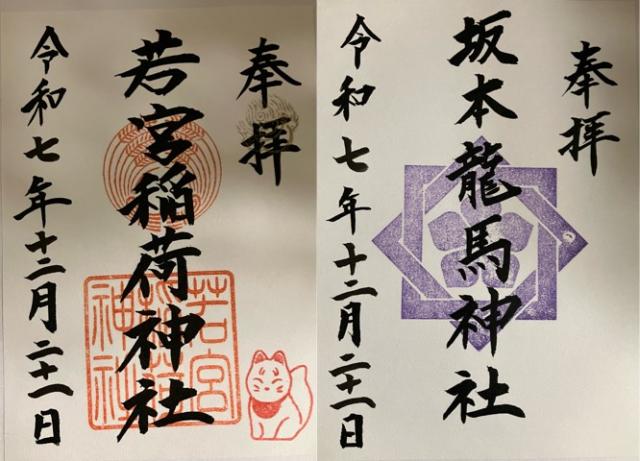 奉拝
若宮稲荷神社
令和七年十二月二十一日
若宮
稲荷
神社
奉拝
坂本龍馬神社
令和七年十二月二十一日